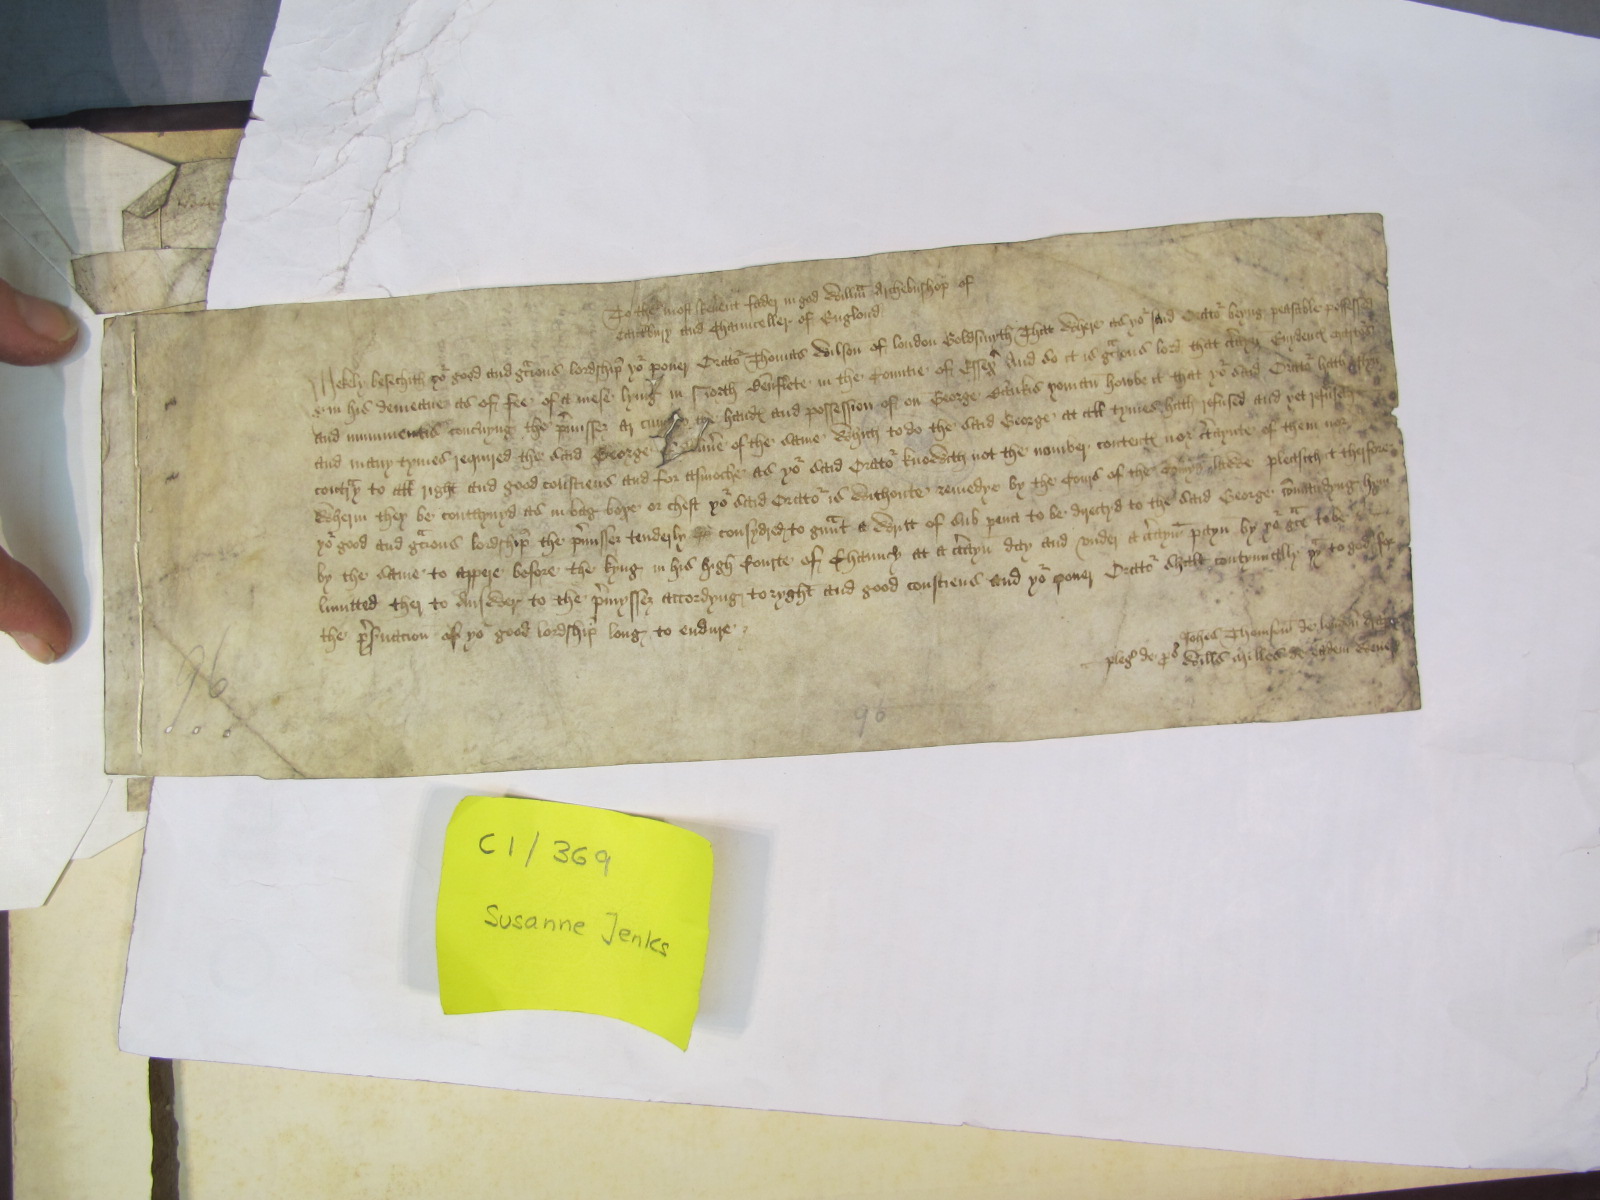 To the most Reverent fader in god Willm Archebusshop of
Cauntbury and Chaunceller of Englond
Mekely besechith yor good and gracious lordship yor poner Orator Thomas Wilson of london Goldsmyth That Where as yor said Orator beyng peasable possessed
in his demeane as of fee of a mese lying in North Benflete in the Countie of Essex And so it is gracious lord that certayn Evydencs
and munimentis concnyng the pmisses ar cum to the handes and possession of on George Bankis yoman howbe it that yor said Orator hath often
and many tymes required the said George of the same Which to do the said George at all tymes hath refused and yet refuseth
contrary to all right and good consciens and for asmoche as yor said Orator knowith not the nomber contents nor certaynte of them nor
Wherin they be conteynyd as in bag boxe or chest yor said Orator is Withoute remedye by the cours of the lawe pleasith it therfore
yor good and gracious lordship the pmisses tenderly consydred to graunt a Writt of sub pena to be directyd to the said George comaundyng hym
by the same to appere before the kyng in his high Courte of Chauncy at a certayn day and under a certayn payn by yor grace to be
limitted ther to answer to the pmysses accordyng to ryght and good consciens and yor poner Orator shall contynually pray to god for
the pservacion of yor good lordship long to endure
Johes Thomson de london
pleg de ps Wills Milles de eadem
96
96
C1/369
Susanne Jenks